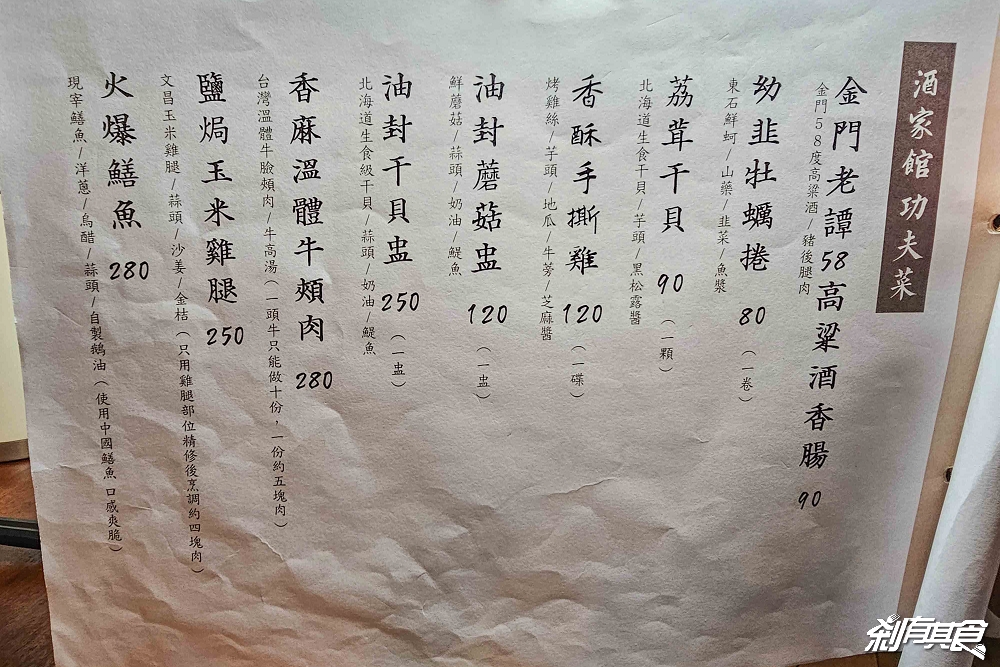 酒家館功夫菜
金門老譚58高粱酒香腸 90
金門58度高粱酒/豬後腿肉
幼韭牡蠣捲 80 (一卷)
東石鮮蚵/山藥/韭菜/魚漿
荔茸干貝 90 (一顆)
北海道生食干貝/芋頭/黑松露醬
香酥手撕雞 120 (一碟)
烤雞絲/芋頭/地瓜/牛蒡/芝麻醬
油封蘑菇盅 120 (一盅)
鮮蘑菇/蒜頭/奶油/鯷魚
油封干貝盅 250 (一盅)
北海道生食級干貝/蒜頭/奶油/鯷魚
香麻溫體牛頰肉 280
台灣溫體牛臉頰肉/牛高湯(一頭牛只能做十份，一份約五塊肉)
鹽焗玉米雞腿 250
文昌玉米雞腿/蒜頭/沙姜/金桔(只用雞腿部位精修後烹調約四塊肉)
火爆鱔魚 280
現宰鱔魚/洋蔥/烏醋/蒜頭/自製鵝油(使用中國鱔魚 口感爽脆)
剎有其食